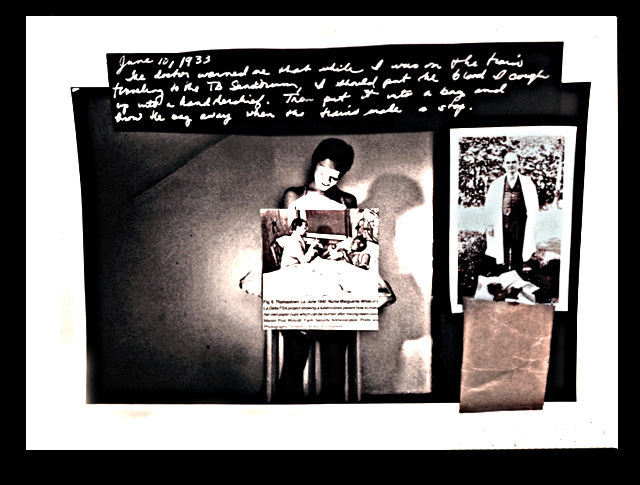 June 10, 1933
The doctor warned me that while I was on the train
traveling to the TB Sanitarium, I should put the blood I cough
up into a handkerchief. Then put it into a bag and
throw the bag away when the trains make a stop.
Fig. 6. Thomastown, La. June 1940. Nurse Marguerite White of
La Delta FSA project showing a tuberculosis patient how to make
her own paper cups which can be burned after having been used
Marion Post Wolcott. Farm Security Administration, Prints and
Photographs